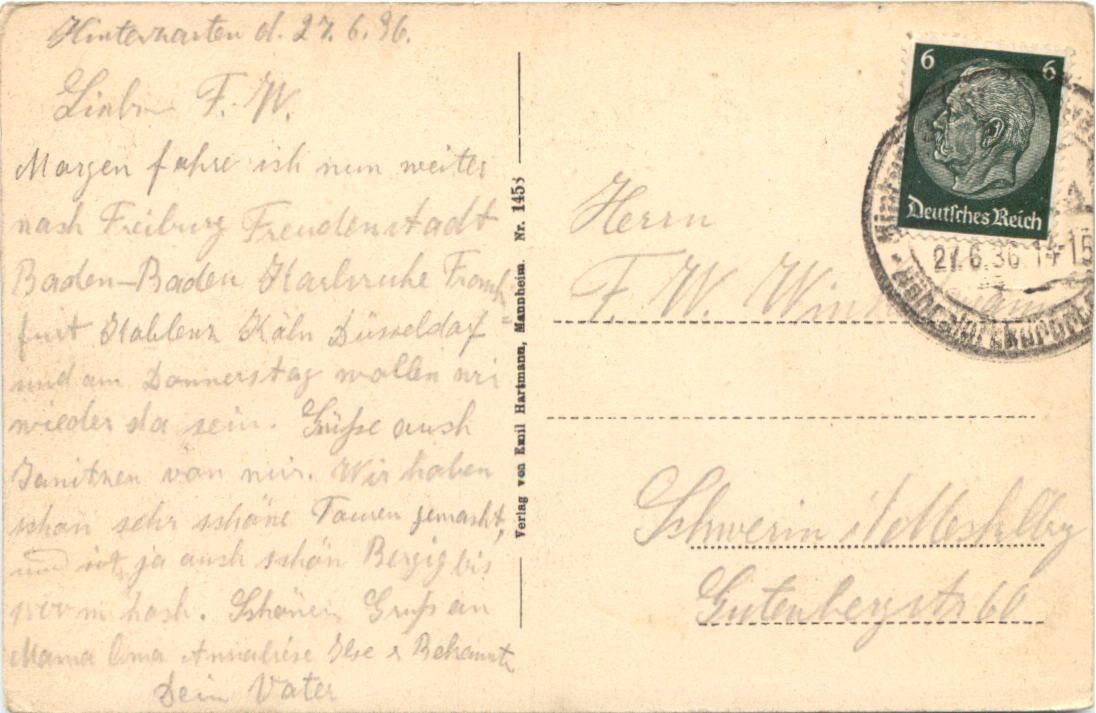 Hinterzarten d. 27.6.36.
Lieber F. W.
Morgen fahre ich nun weiter
nach Freiburg Freudenstadt
Baden-Baden Karlsruhe Frank
furt Koblenz Köln Düsseldorf
und am Donnerstag wollen wir
wieder da sein. Grüße auch
von mir. Wir haben
schon sehr schöne Touren gemacht,
und ist ja auch schön Bergig bis
m hoch. Schönen Gruß an
Mama Oma Annaliese Ilse & Bekannte
Dein Vater
Verlag von Emil Hartmann, Mannheim. Nr. 1458
6 6
Deutsches Reich
27.6.36.14-15
Herrn
F. W.
Schwerin i/Mecklbg
Gutenbergstr 60